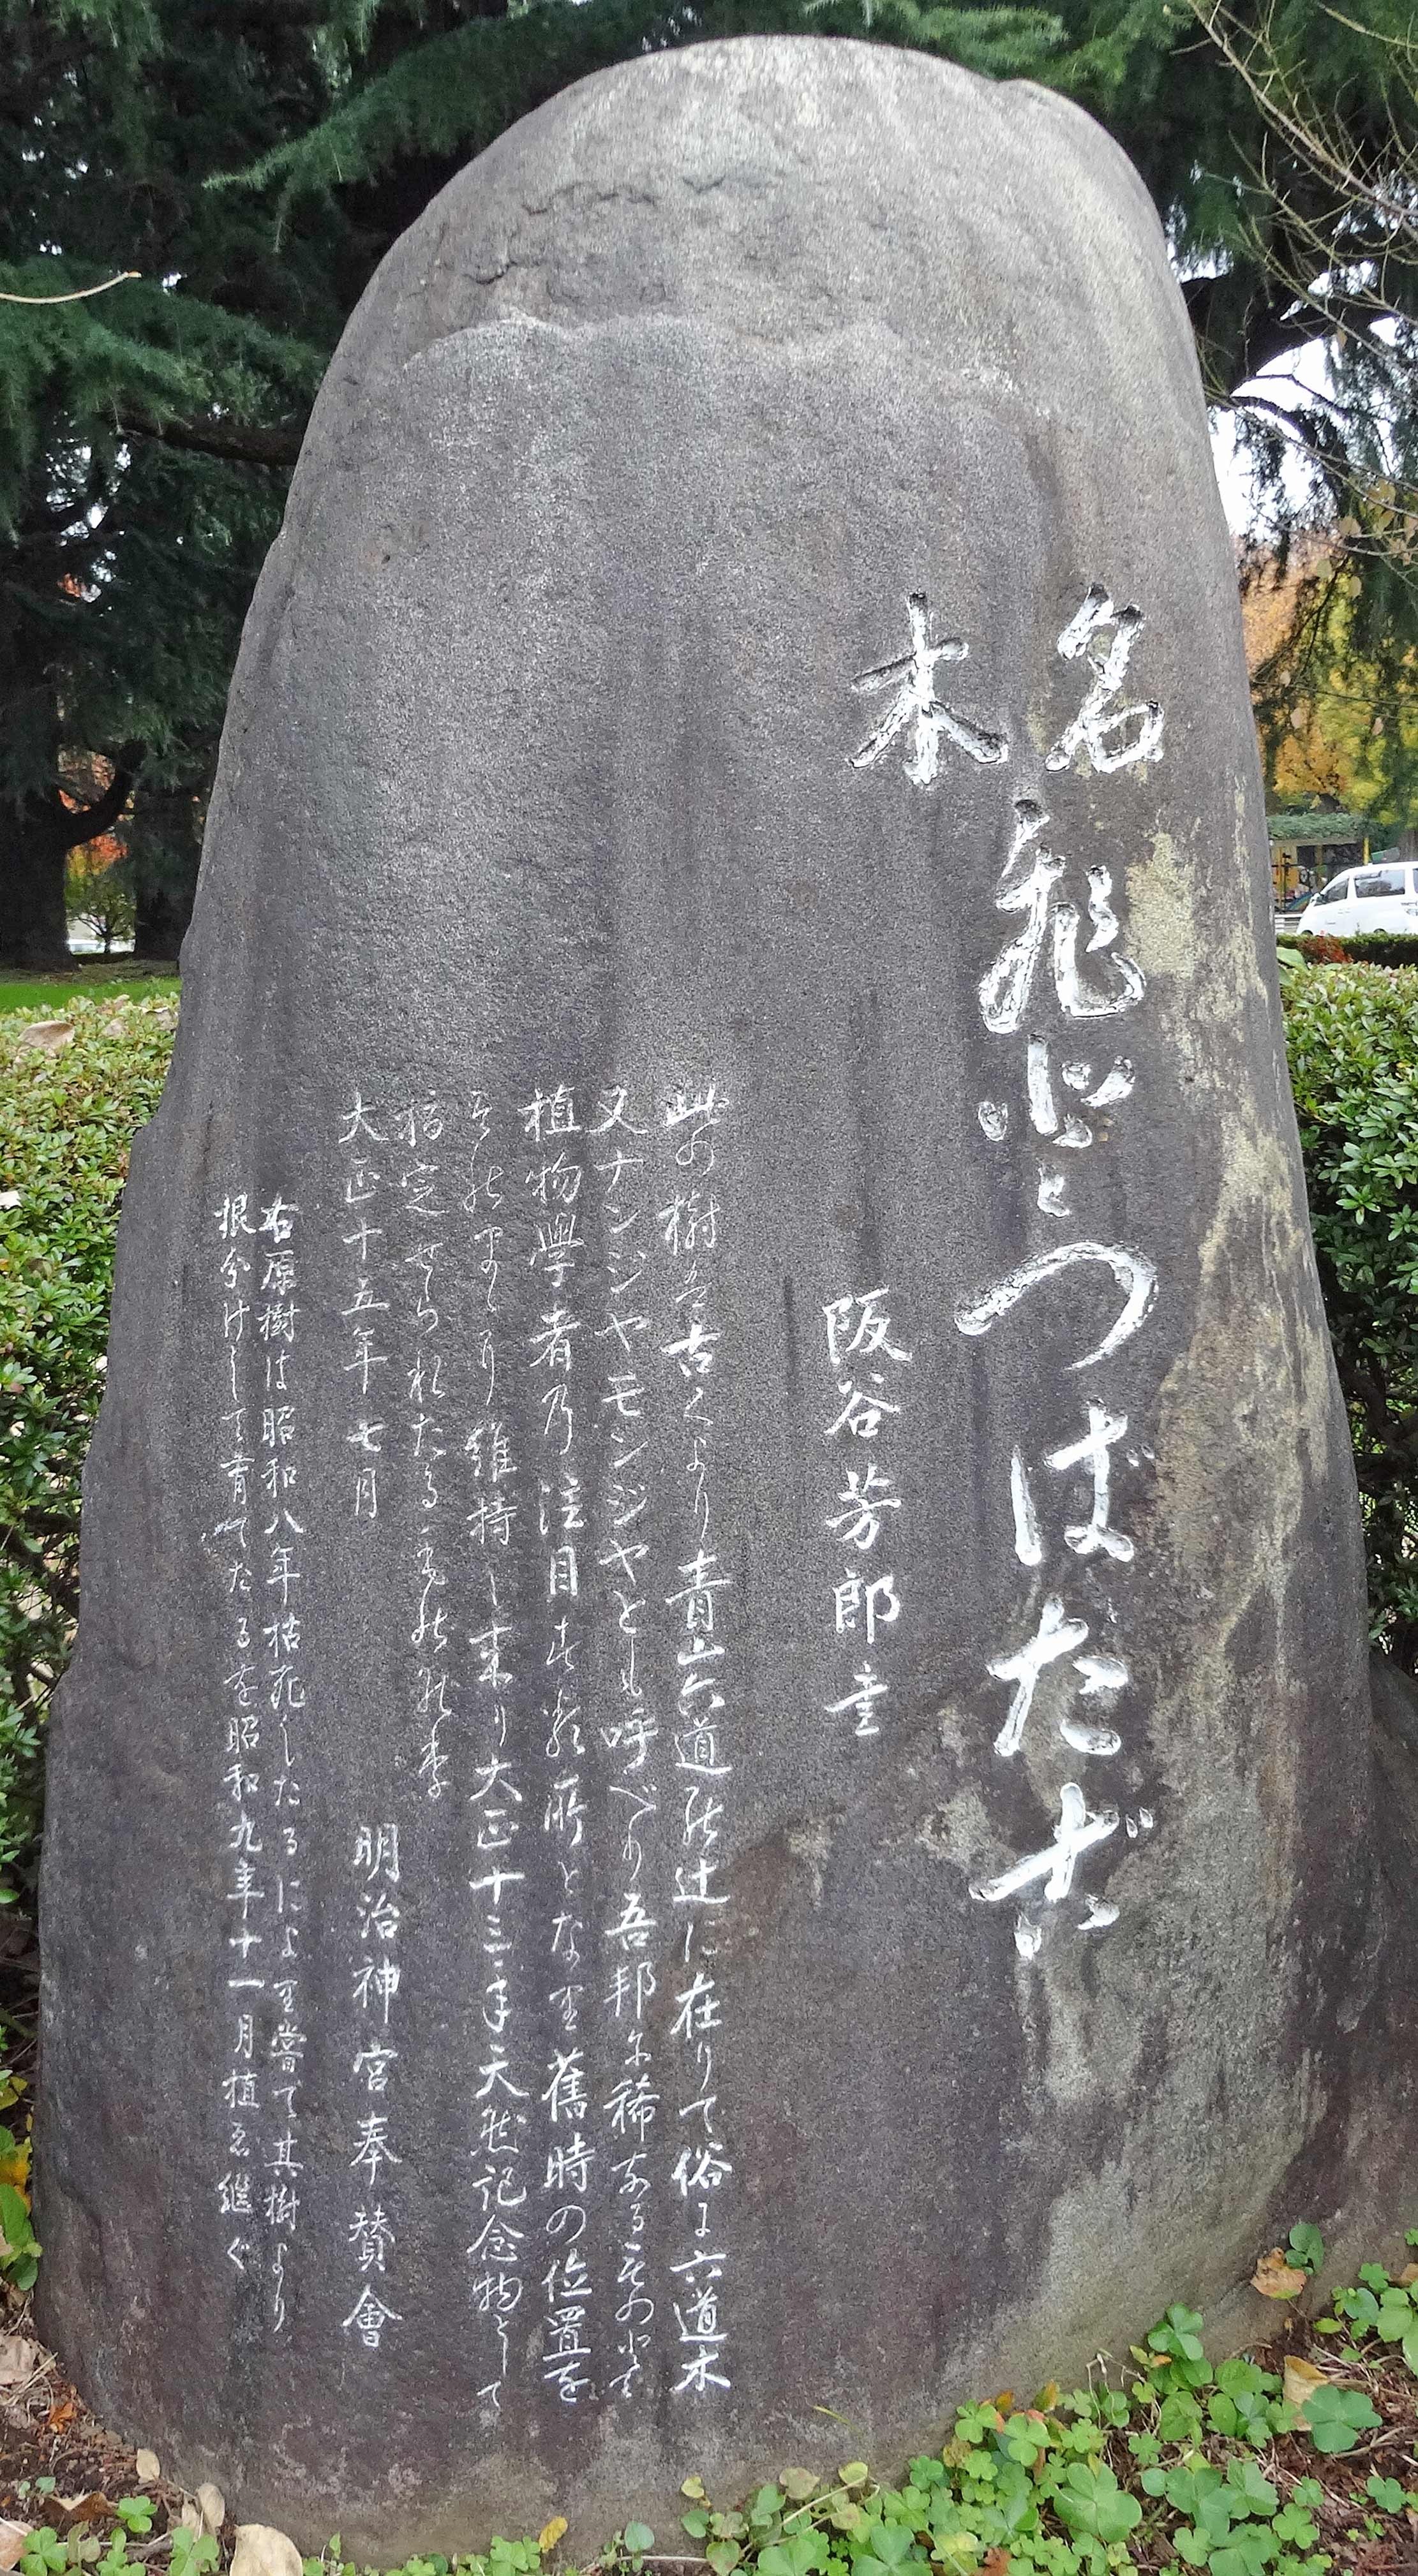 名木
ひとつばたご
阪谷芳郎書
此の樹は古くより青山六道の辻に在りて俗に六道木
又ナンジヤモンジヤとも呼べり吾邦に稀なるものにして
植物學者の注目する所となり舊時の位置を
その維持し来り大正十三年天然記念物として
指定せられたるものなり
大正十五年七月 明治神宮奉賛會
右原樹は昭和八年枯死したるにより嘗て其樹より
根分けして育てたるを昭和九年十一月植ゑ継ぐ